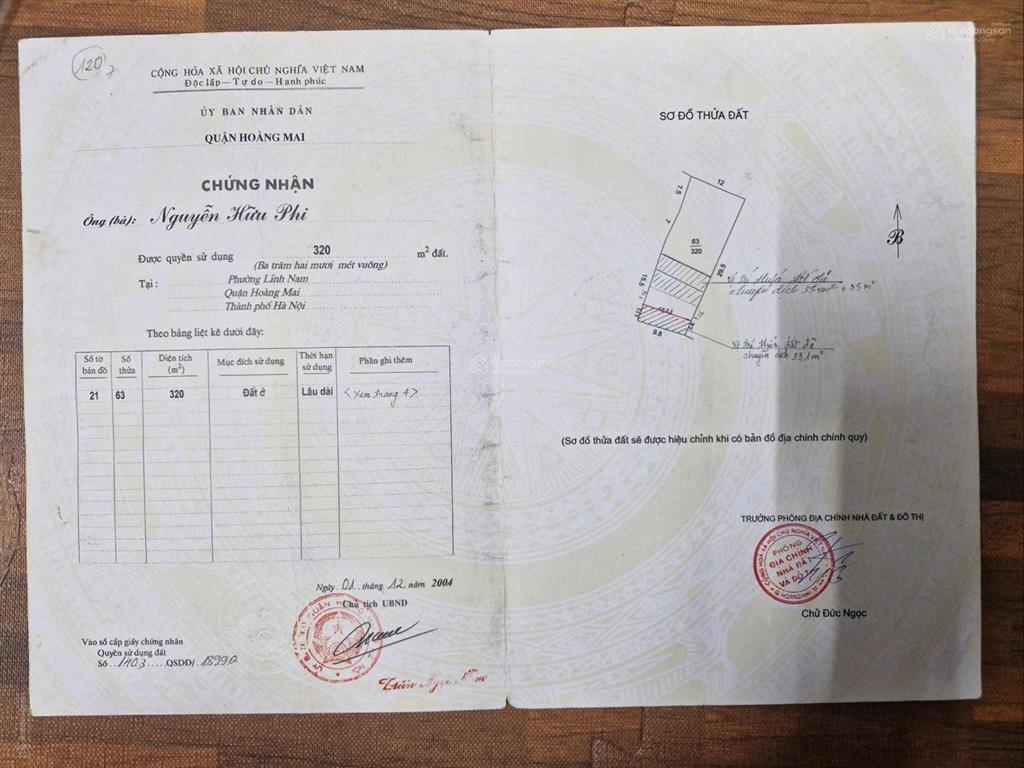 120
CỘNG HÒA XÃ HỘI CHỦ NGHĨA VIỆT NAM
Độc lập - Tự do - Hạnh phúc
ỦY BAN NHÂN DÂN
QUẬN HOÀNG MAI
CHỨNG NHẬN
Ông (bà): Nguyễn Hữu Phi
Được quyền sử dụng 320 m² đất.
(Ba trăm hai mươi mét vuông)
Tại : Phường Lĩnh Nam
Quận Hoàng Mai
Thành phố Hà Nội
Theo bảng liệt kê dưới đây:
Số tờ bản đồ Số thửa Diện tích (m²) Mục đích sử dụng Thời hạn sử dụng Phần ghi thêm
21 63 320 Đất ở Lâu dài <Xem trang 4>
Ngày 01 tháng 12 năm 2004
Chủ tịch UBND
Vào sổ cấp giấy chứng nhận
Quyền sử dụng đất
Số 1403 QSDĐ/ 1899.Q
Trần Ngọc
SƠ ĐỒ THỬA ĐẤT
12
7.5
7
63
320
29.5
15.5
9.8
B
thửa đất đã
chuyển dịch + 35 m²
thửa đất đã
chuyển dịch 33,1m²
(Sơ đồ thửa đất sẽ được hiệu chỉnh khi có bản đồ địa chính chính quy)
TRƯỞNG PHÒNG ĐỊA CHÍNH NHÀ ĐẤT & ĐÔ THỊ
PHÒNG
ĐỊA CHÍNH
NHÀ ĐẤT
VÀ ĐÔ THỊ
Chử Đức Ngọc
Batdongsan